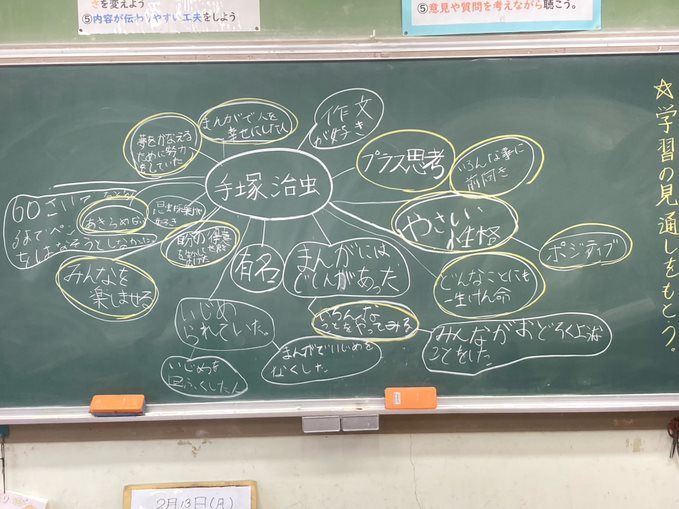 さを変えよう
⑤内容が伝わりやすい工夫をしよう
⑤意見や質問を考えながら聴こう。
☆学習の見通しをもとう。
手塚治虫
まんがで人を
幸せにしたい
作文
が好き
夢をかなえる
ために努力
をしていた
プラス思考
いろんな事に
前向き
60さい
るまでペン
あきらめない
なそうとしなかった
みんなを
楽しませる
有名
まんがには
やさしい
性格
ポジティブ
どんなことにも
一生けん命
いじめ
られていた。
いろんな
ことをやってみる
みんながおどろく
ことをした
まんがでいじめを
なくした。
いじめを
2月13日(月)